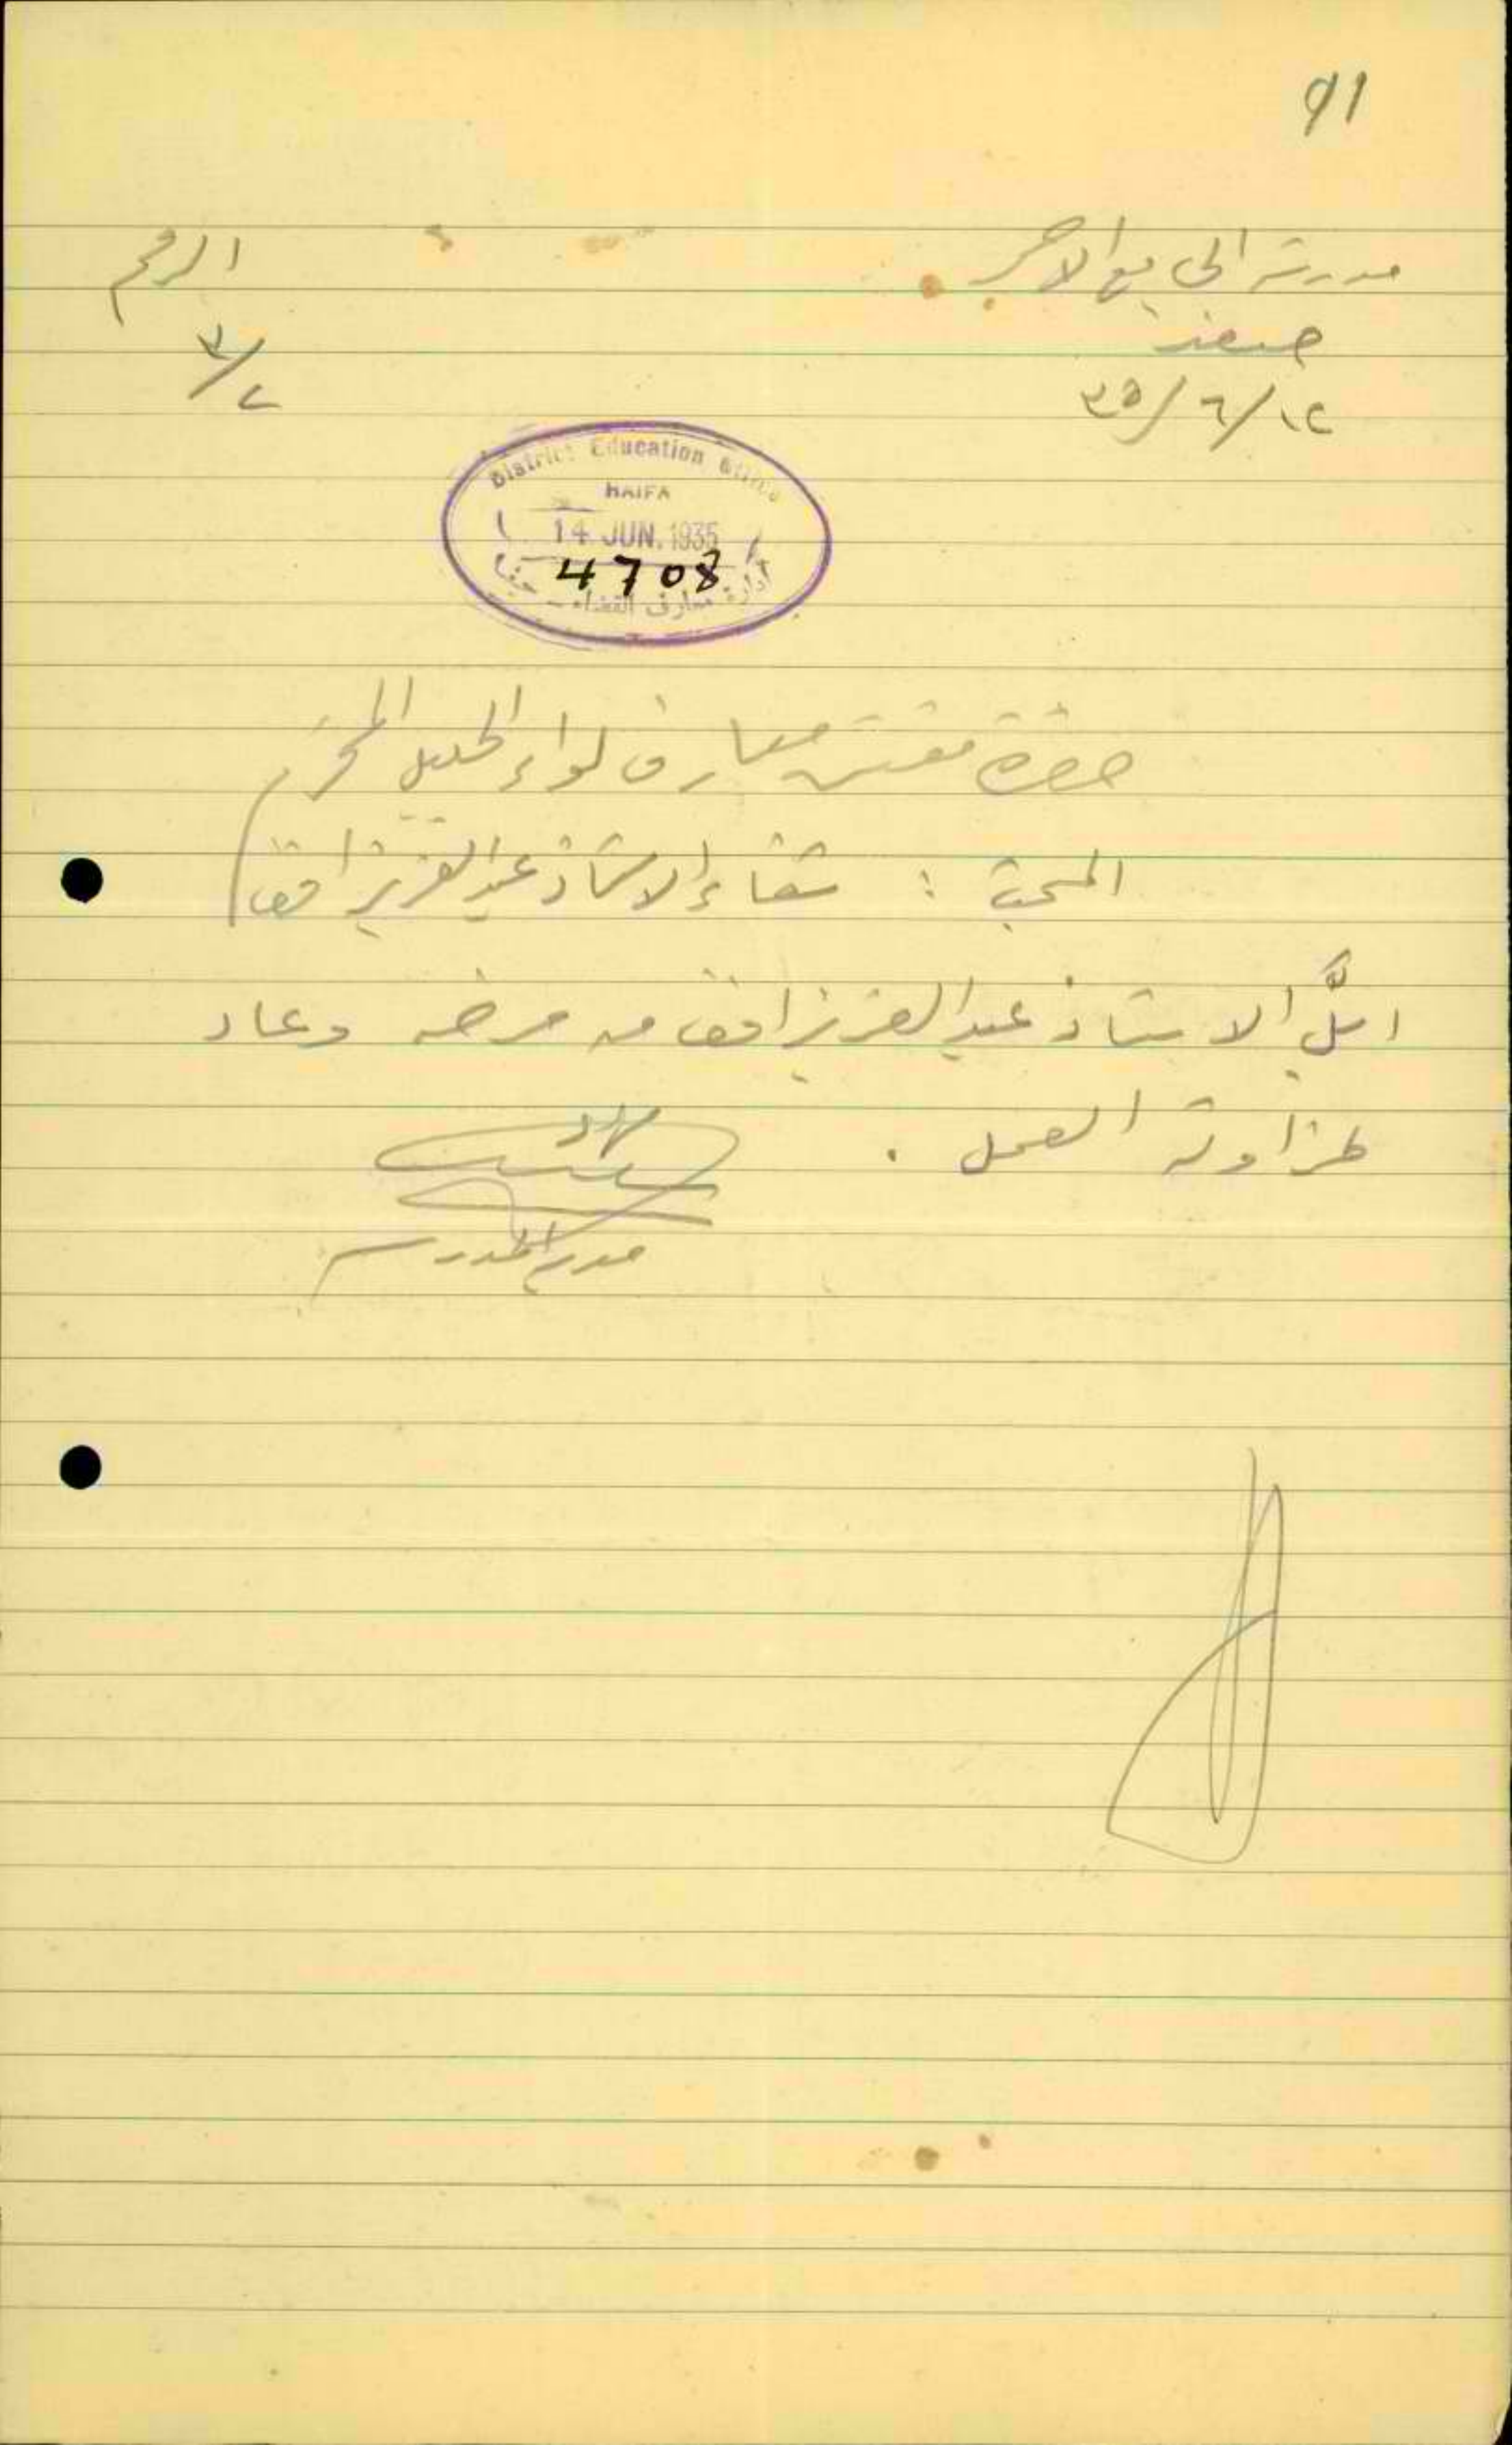 91
مدرسة الجامع الاحمر
الرقم
صفد
٣/٢
١٢/٦/٣٥
District Education Office
HAIFA
14 JUN. 1935
4708
ادارة معارف القضاء - حيفا
حضرة مفتش معارف لواء الجليل المحترم
المبحث : شفاء الاستاذ عبد العزيز
ابلَّ الاستاذ عبد العزيز من مرضه وعاد
لمزاولة العمل .
مدير المدرسة